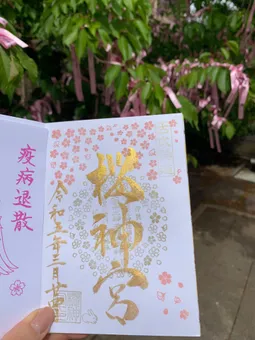 桜神宮
令和五年三月廿四日
疫病退散